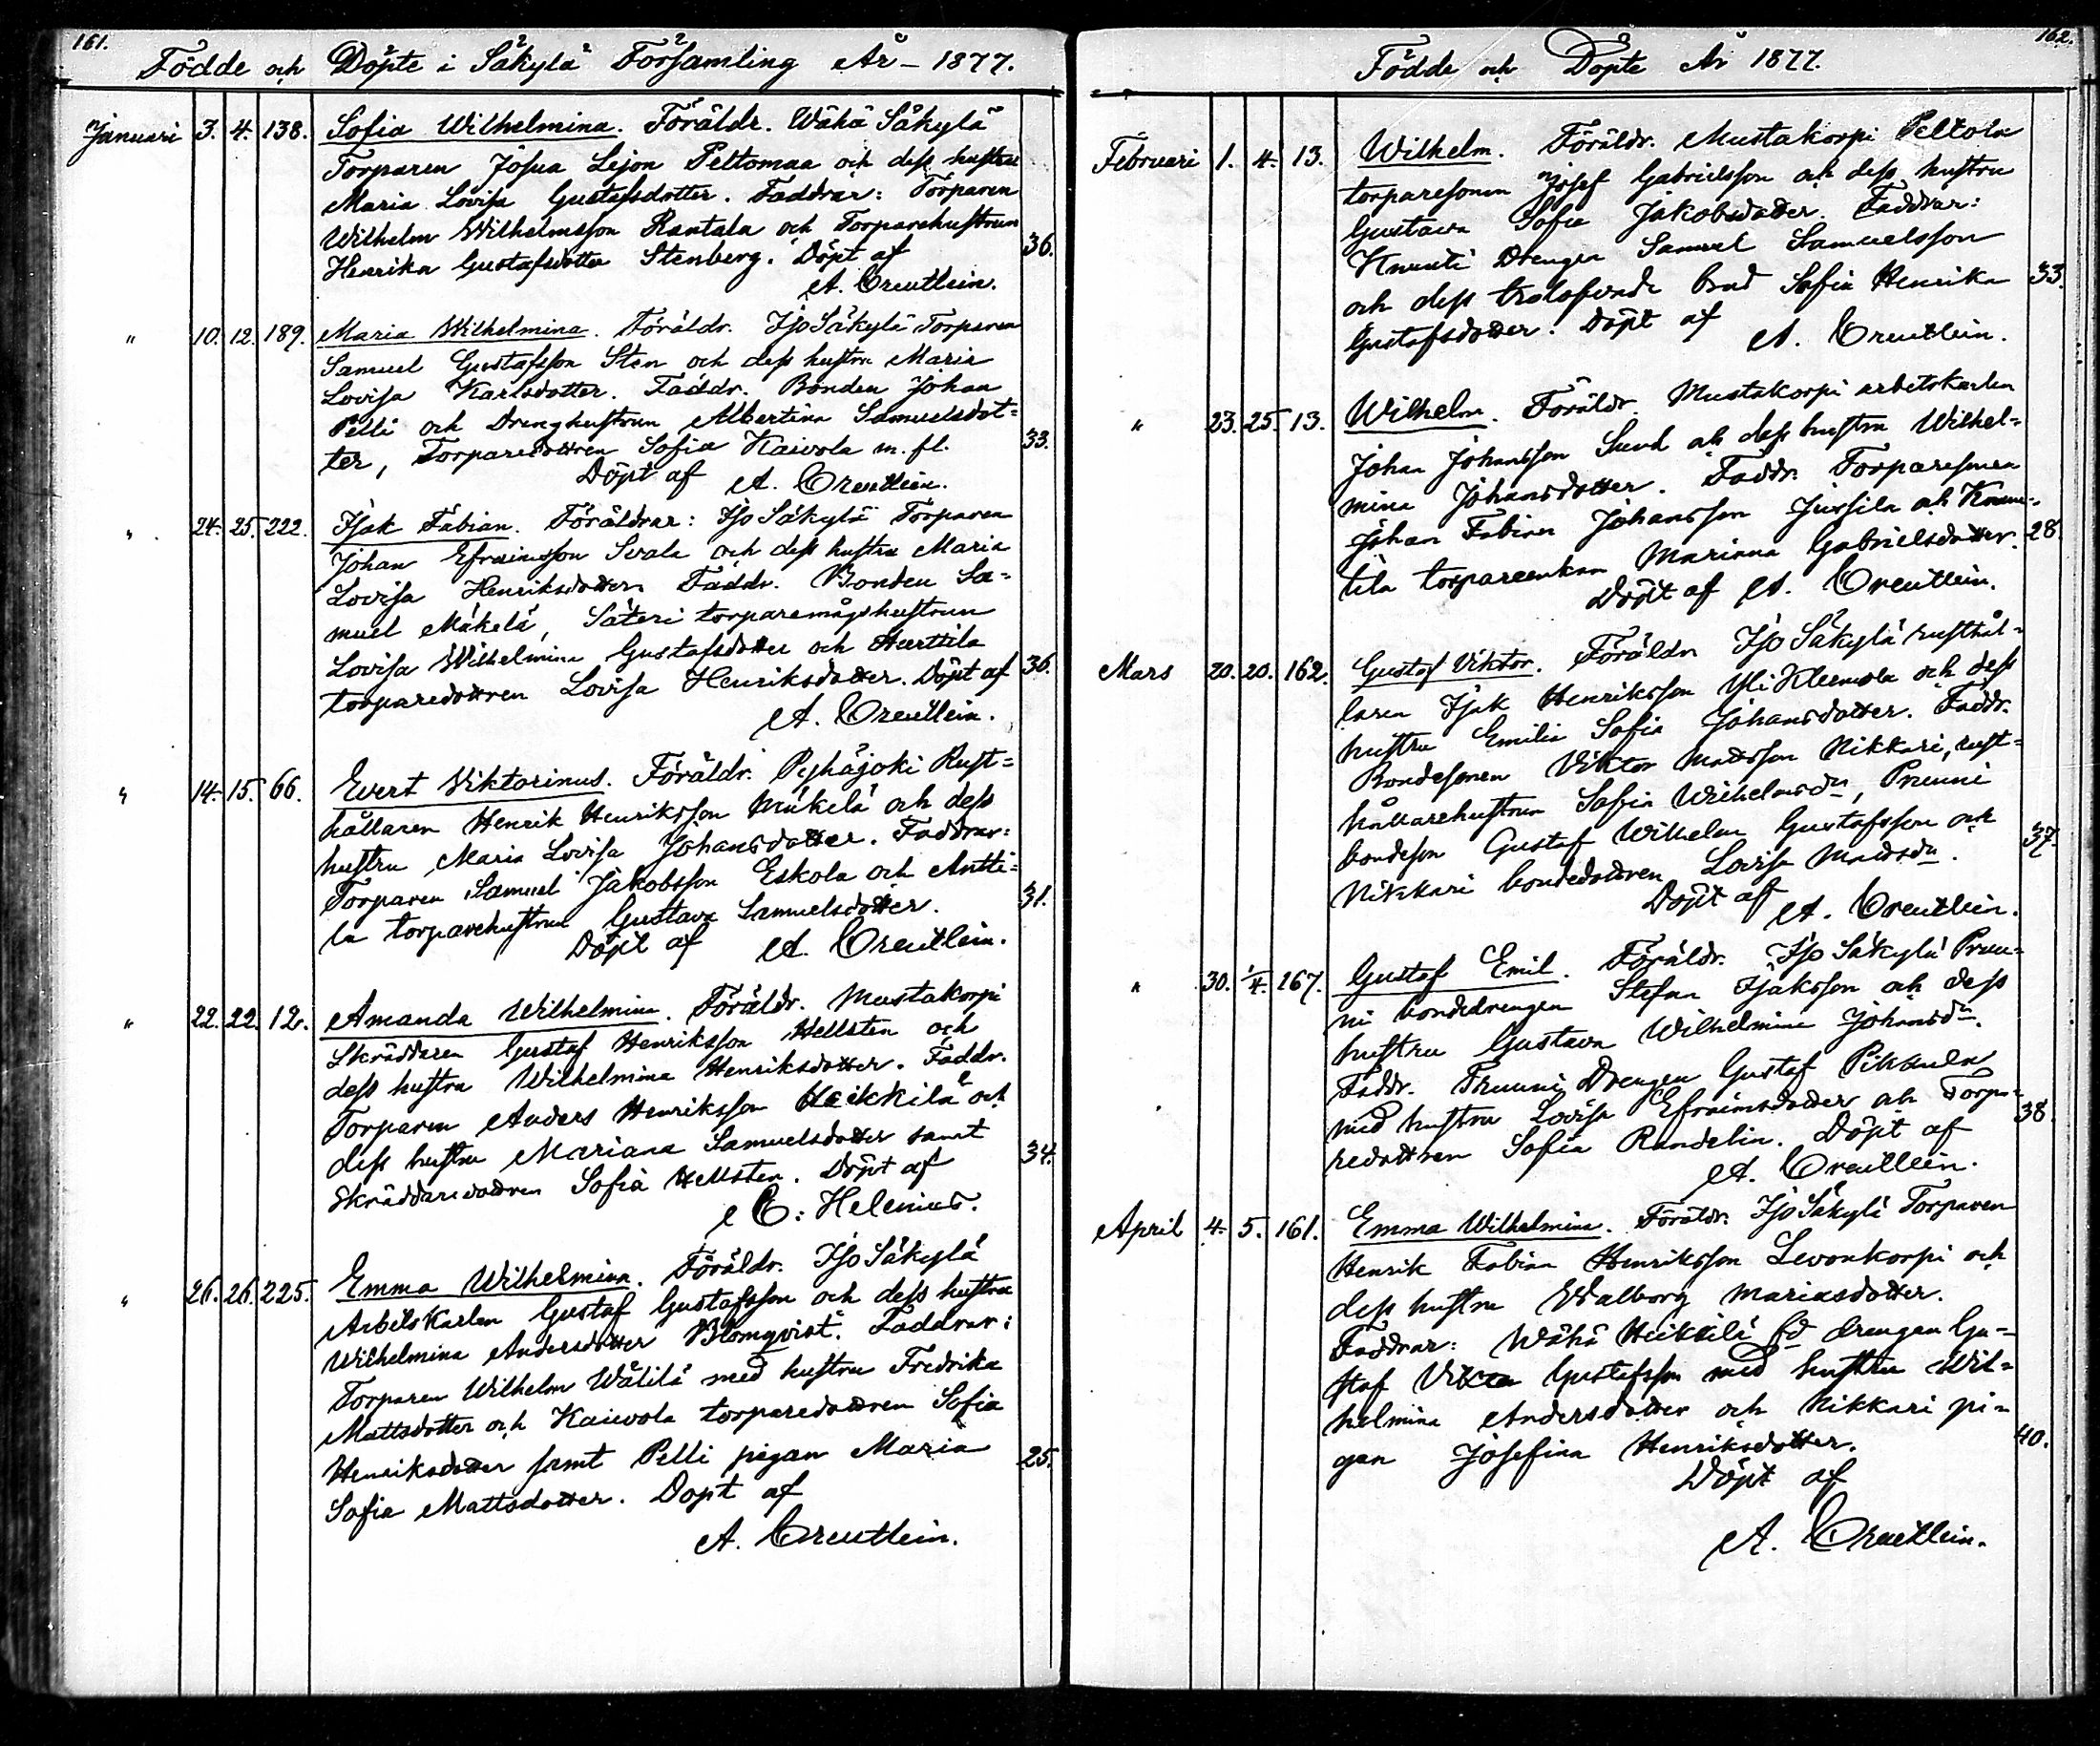 161.
Födde och Döpte i Säkylä Församling År - 1877.
Januari 3. 4. 138. Sofia Wilhelmina. Föräldr. Wähä Säkylä
Torparen Josua Lejon Peltomaa och dess hustru
Maria Lovisa Gustafsdotter. Faddrar: Torparen
Wilhelm Wilhelmsson Rantala och Torparehustrun
Henrika Gustafsdotter Stenberg. Döpt af 36.
A. Creutlein.
" 10. 12. 189. Maria Wilhelmina. Föräldr. Iso Säkylä Torparen
Samuel Gustafsson Sten och dess hustru Maria
Lovisa Karlsdotter. Faddr. Bonden Johan
Pelli och Drenghustrun Albertina Samuelsdot=
ter, Torparedottren Sofia Kaivola m. fl. 33.
Döpt af A. Creutlein.
" 24. 25. 222. Isak Fabian. Föräldrar: Iso Säkylä Torparen
Johan Efraimsson Svala och dess hustru Maria
Lovisa Henriksdotter. Faddr. Bonden Sa=
muel Mäkelä, Säteri torparemågshustrun
Lovisa Wilhelmina Gustafsdotter och Hurttila
torparedottren Lovisa Henriksdotter. Döpt af 36.
A. Creutlein.
" 14. 15. 66. Evert Viktorinus. Föräldr. Pyhäjoki Rust=
hållaren Henrik Henriksson Mäkelä och dess
hustru Maria Lovisa Johansdotter. Faddrar:
Torparen Samuel Jakobsson Eskola och Antti=
la torparehustrun Gustava Samuelsdotter. 31.
Döpt af A. Creutlein.
" 22. 22. 12. Amanda Wilhelmina. Föräldr. Mustakorpi
Skräddaren Gustaf Henriksson Hellsten och
dess hustru Wilhelmina Henriksdotter. Faddr.
Torparen Anders Henriksson Heikkilä och
dess hustru Mariana Samuelsdotter samt 34.
Skräddaredottren Sofia Hellsten. Döpt af
C: Helenius.
" 26. 26. 225. Emma Wilhelmina. Föräldr. Iso Säkylä
Arbetskarlen Gustaf Gustafsson och dess hustru
Wilhelmina Andersdotter Blomqvist. Faddrar:
Torparen Wilhelm Wälilä med hustru Fredrika
Mattsdotter och Kaivola torparedottren Sofia
Henriksdotter samt Pelli pigan Maria 25.
Sofia Mattsdotter. Döpt af
A. Creutlein.
162.
Födde och Döpte År 1877.
Februari 1. 4. 13. Wilhelm. Föräldr. Mustakorpi Peltola
torparesonen Josef Gabrielsson och dess hustru
Gustava Sofia Jakobsdotter. Faddrar:
Knuuti Drengen Samuel Samuelsson
och dess trolofvade brud Sofia Henrika 33.
Gustafsdotter. Döpt af
A. Creutlein.
" 23. 25. 13. Wilhelm. Föräldr. Mustakorpi arbetskarlen
Johan Johansson Sund och dess hustru Wilhel=
mina Johansdotter. Faddr. Torparesonen
Johan Fabian Johansson Jussila och
tila torpareenkan Marianna Gabrielsdotter. 28.
Döpt af A. Creutlein.
Mars 20. 20. 162. Gustaf Viktor. Föräldr. Iso Säkylä rusthål=
laren Isak Henriksson Yli Kleemola och dess
hustru Emilia Sofia Johansdotter. Faddr.
Bondesonen Viktor Mattsson Nikkari, rust=
hållarehustrun Sofia Wilhelmsdr, Pruuni
bondeson Gustaf Wilhelm Gustafsson och 37.
Nikkari bondedottren Lovisa Mattsdr.
Döpt af A. Creutlein.
" 30. 1/4. 167. Gustaf Emil. Föräldr. Iso Säkylä Pruu=
ni bondedrengen Stefan Isaksson och dess
hustru Gustava Wilhelmina Johansdr.
Faddr. Pruuni Drengen Gustaf Pikkula
med hustru Lovisa Efraimsdotter och Torpa= 38.
redottren Sofia Randelin. Döpt af
A. Creutlein.
April 4. 5. 161. Emma Wilhelmina. Föräldr. Iso Säkylä Torparen
Henrik Fabian Henriksson Levonkorpi och
dess hustru Walborg Mariasdotter.
Faddrar: Wähä Heikkilä fd drengen Gu=
staf Viktor Gustafsson med hustru Wil=
helmina Andersdotter och Nikkari pi= 40.
gan Josefina Henriksdotter.
Döpt af
A. Creutlein.